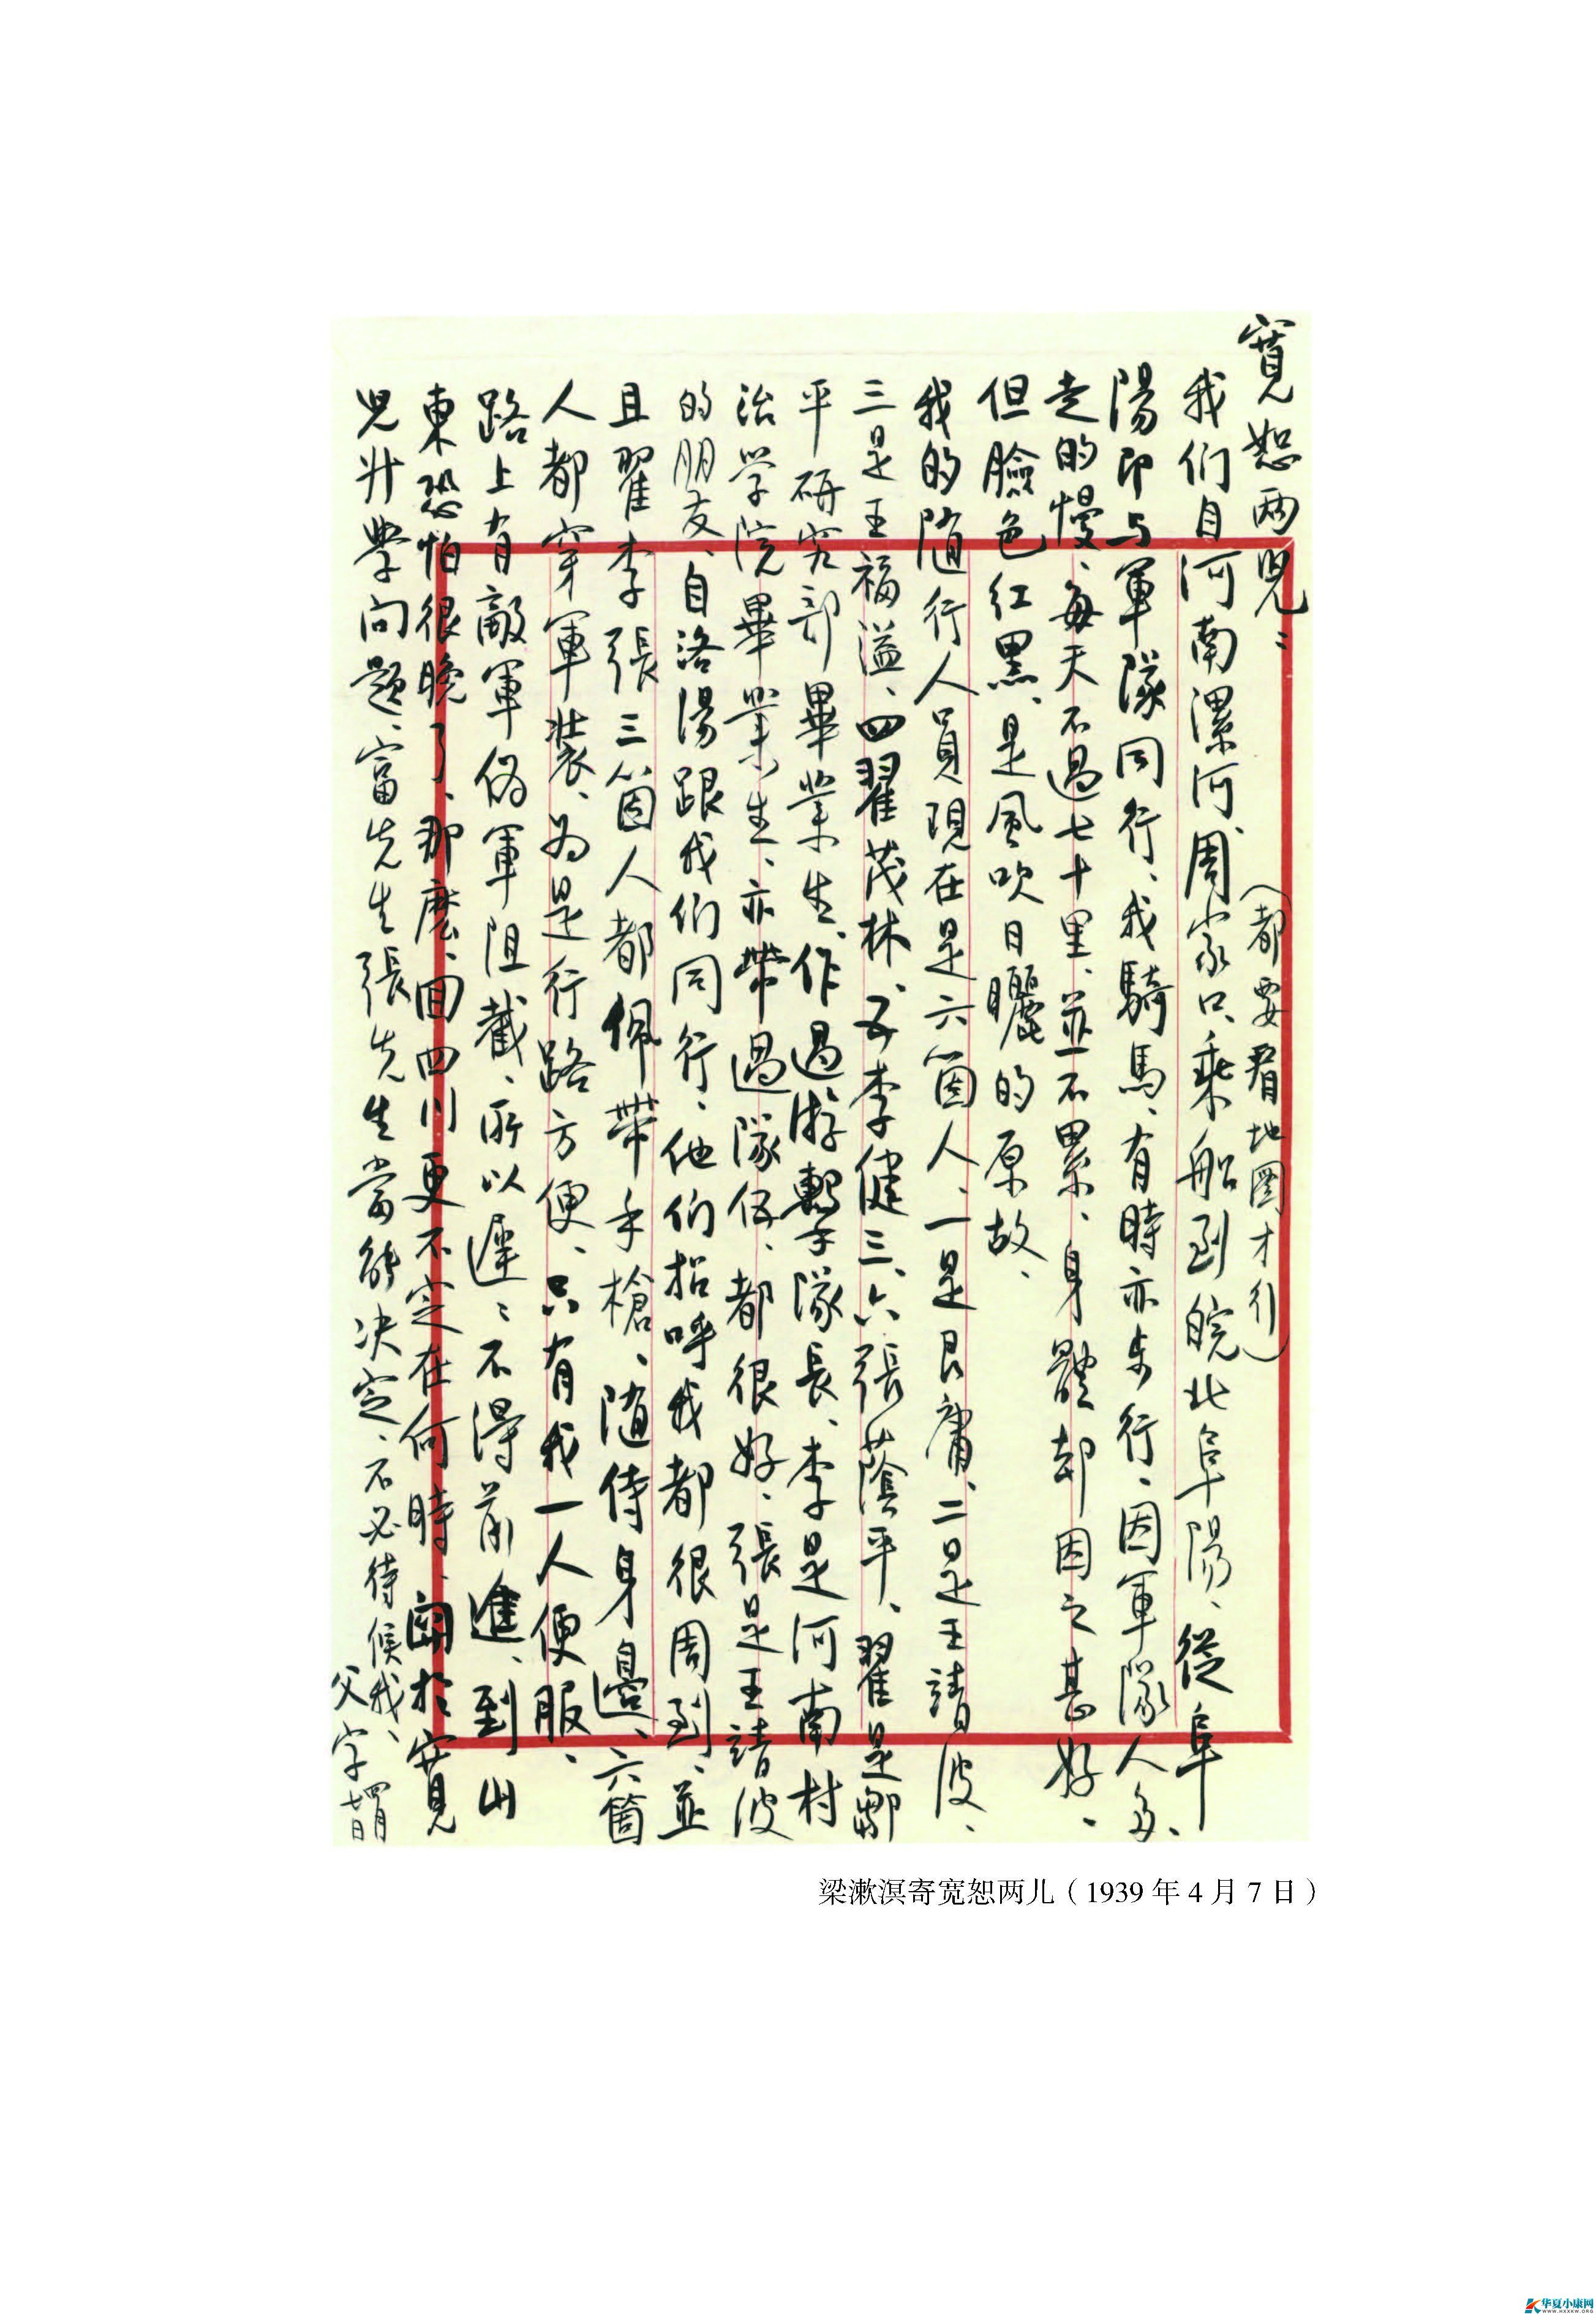 寬恕两兒：
（都要看地圖才行）
我们自河南漯河、周家口、乘船到皖北阜陽、從阜
陽即与軍隊同行、我騎馬、有時亦步行、因軍隊人多、
走的慢、每天不過七十里、並不累、身體却因之甚好、
但臉色红黑、是風吹日曬的原故、
我的随行人員現在是六箇人、一是艮庸、二是王靖波、
三是王福溢、四翟茂林、五李健三、六張蔭平、翟是鄒
平研究部畢業生、作過游擊隊長、李是河南村
治学院畢業生、亦帶過隊伍、都很好、張是王靖波
的朋友、自洛陽跟我们同行、他们招呼我都很周到、並
且翟李張三箇人都佩帶手槍、随侍身邊、六箇
人都穿軍裝、为是行路方便、只有我一人便服、
路上有敵軍伪軍阻截、所以遲：不得前進、到山
東恐怕很晚了、那麽、回四川更不定在何時、関於寬
兒升學问題、富先生張先生當能决定、不必待候我、
父字 四月七日
梁漱溟寄宽恕两儿（1939 年 4 月 7 日）
华夏小康网
WWW.HXXKW.ORG